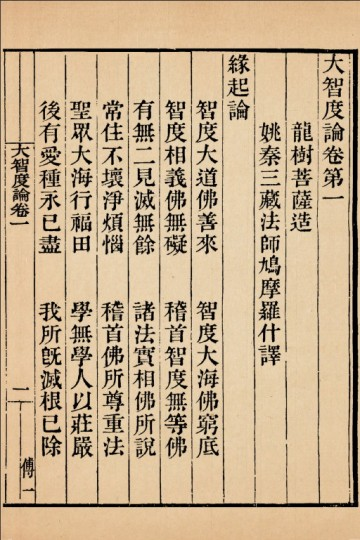 大智度論卷第一
龍樹菩薩造
姚秦三藏法師鳩摩羅什譯
緣起論
智度大道佛善來　智度大海佛窮底
智度相義佛無礙　稽首智度無等佛
有無二見滅無餘　諸法實相佛所說
常住不壞淨煩惱　稽首佛所尊重法
聖眾大海行福田　學無學人以莊嚴
後有愛種永已盡　我所既滅根已除
大智度論卷一　二　傅一